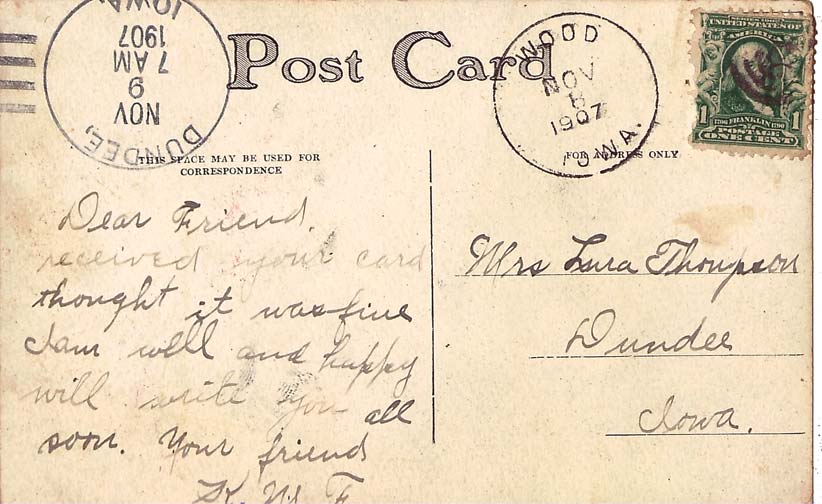 Post Card
DUNDEE,
NOV
9
7 AM
1907
IOWA.
WOOD
NOV
8
1907
IOWA.
SERIES 1902
UNITED STATES OF
AMERICA
1706 FRANKLIN 1790
1 POSTAGE 1
ONE CENT
THIS SPACE MAY BE USED FOR
CORRESPONDENCE
FOR ADDRESS ONLY
Dear Friend,
received your card
thought it was fine
I am well and happy
will write you all
soon. Your friend
Mrs Lura Thompson
Dundee
Iowa.